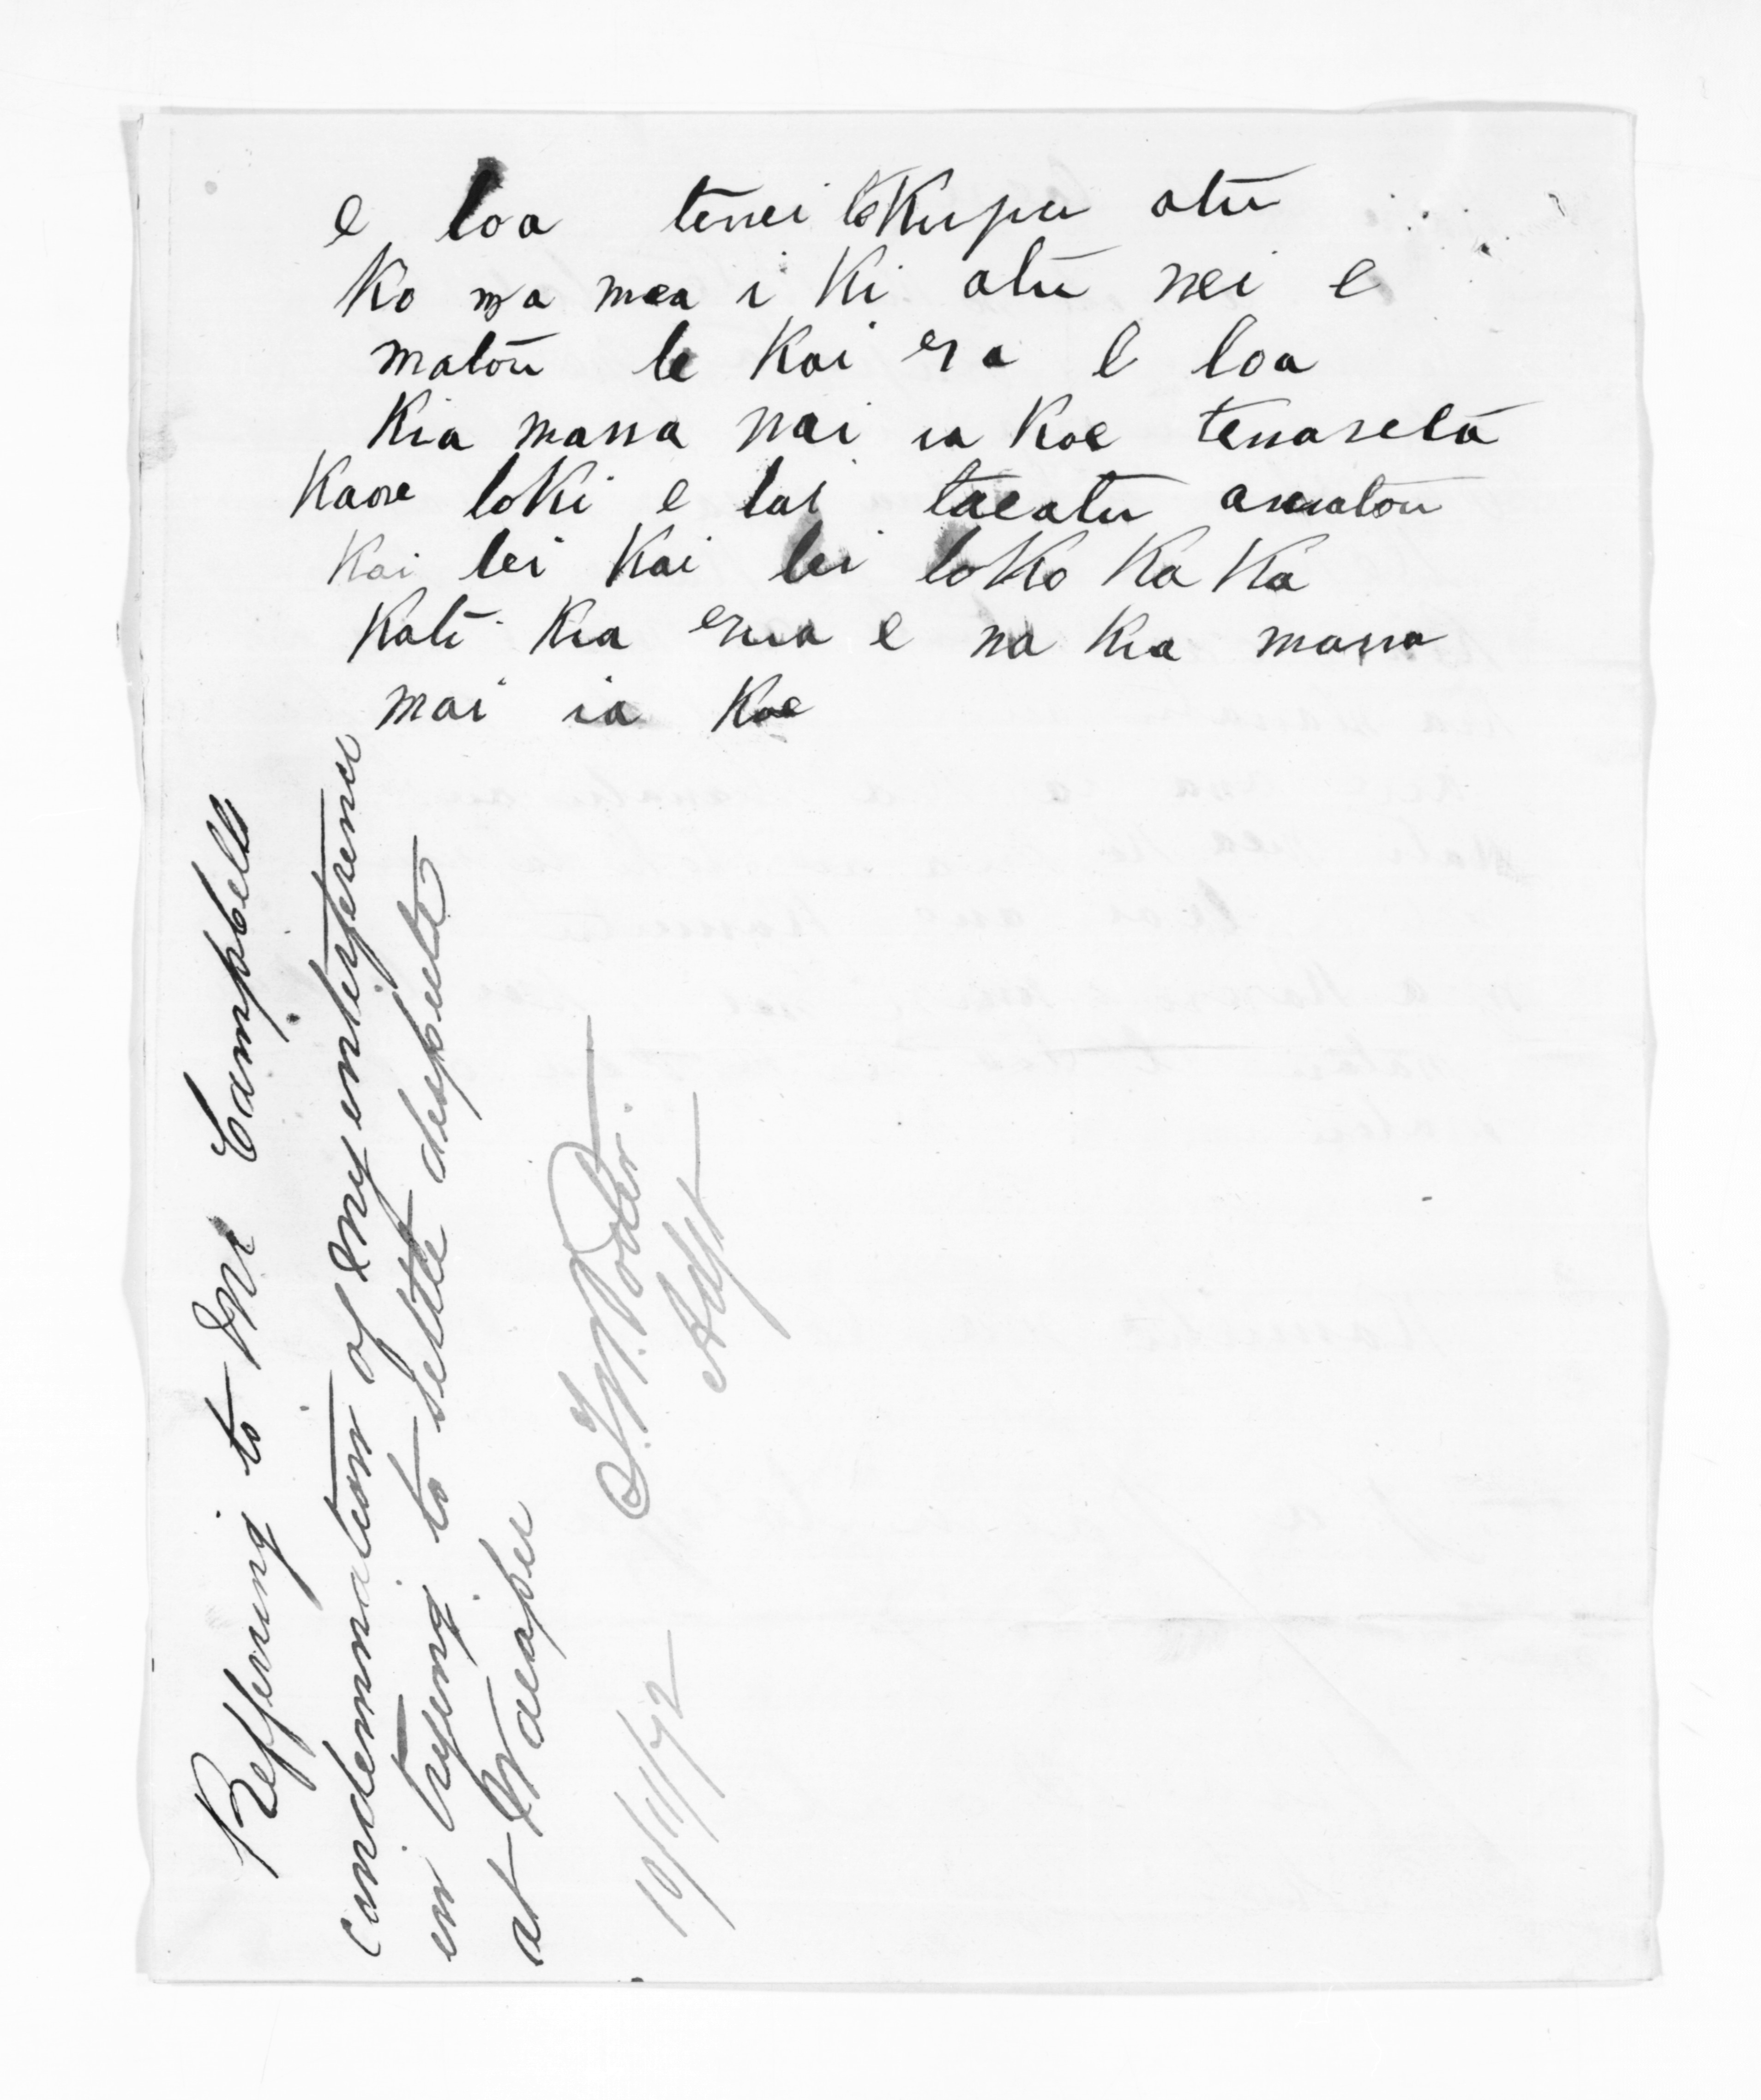 e toa tenei tekupu atu
Ko na mea i Ki atu nei e
matou te Kai era e toa
Kia mana mai ia Koe tenaretu
Kaore toki e tae taeatu amatou
Kai tei Kai tei toko Ka Ka
Kati Kia ena e na Kia mana
mai ia Koe
Reffering to Mr Campbells
candemnation of my enterference
in trying to settle despute
at Waeapu
T.W. Porter
10/11/72